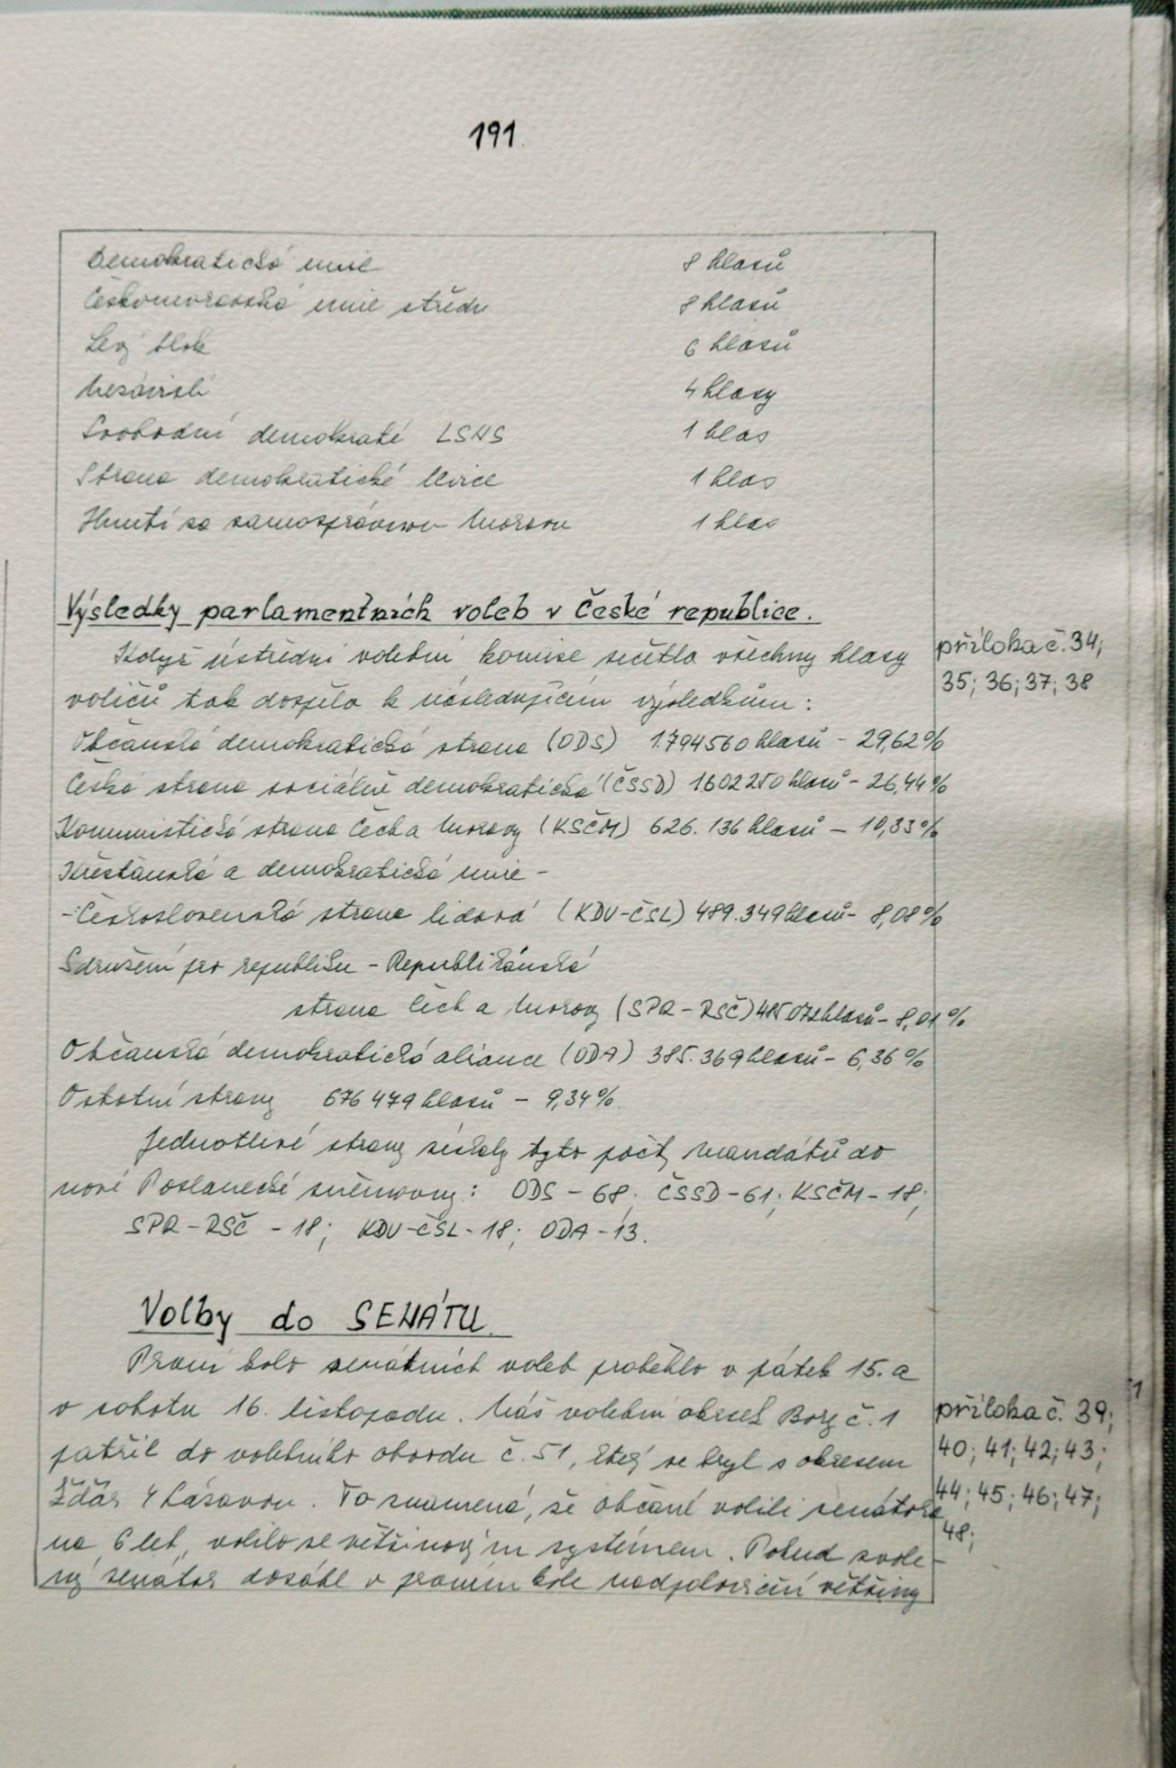 191.
Demokratická unie 8 hlasů
Českomoravská unie středu 8 hlasů
Levý blok 6 hlasů
Nezávislí 4 hlasy
Svobodní demokraté LSNS 1 hlas
Strana demokratické levice 1 hlas
Hnutí sa samosprávnou Moravu 1 hlas
Výsledky parlamentních voleb v České republice.
Když ústřední volební komise sečetla všechny hlasy
příloha č. 34;
voličů tak dospěla k následujícím výsledkům:
35; 36; 37; 38
Občanská demokratická strana (ODS) 1.794560 hlasů - 29,62%
Česká strana sociálně demokratická (ČSSD) 1.602250 hlasů - 26,44%
Komunistická strana Čech a Moravy (KSČM) 626.136 hlasů - 10,33%
Křesťanská a demokratická unie -
- Československá strana lidová (KDU-ČSL) 489.349 hlasů - 8,08%
Sdružení pro republiku - Republikánská
strana Čech a Moravy (SPR-RSČ) 485072 hlasů - 8,01%
Občanská demokratická aliance (ODA) 385.369 hlasů - 6,36%
Ostatní strany 676479 hlasů - 9,34%.
Jednotlivé strany získaly tyto počty mandátů do
nové Poslanecké sněmovny: ODS - 68; ČSSD - 61; KSČM - 18;
SPR-RSČ - 18; KDU-ČSL - 18; ODA - 13.
Volby do SENÁTU.
První kolo senátních voleb proběhlo v pátek 15. a
v sobotu 16. listopadu. Náš volební okrsek Bory č. 1
příloha č. 39;
patřil do volebního obvodu č. 51, který se kryl s okresem
40; 41; 42; 43;
Žďár n Sázavou. To znamená, že občané volili senátora
44; 45; 46; 47;
na 6 let, volilo se většinovým systémem. Pokud zvole-
48;
ný senátor dosáhl v prvním kole nadpoloviční většiny